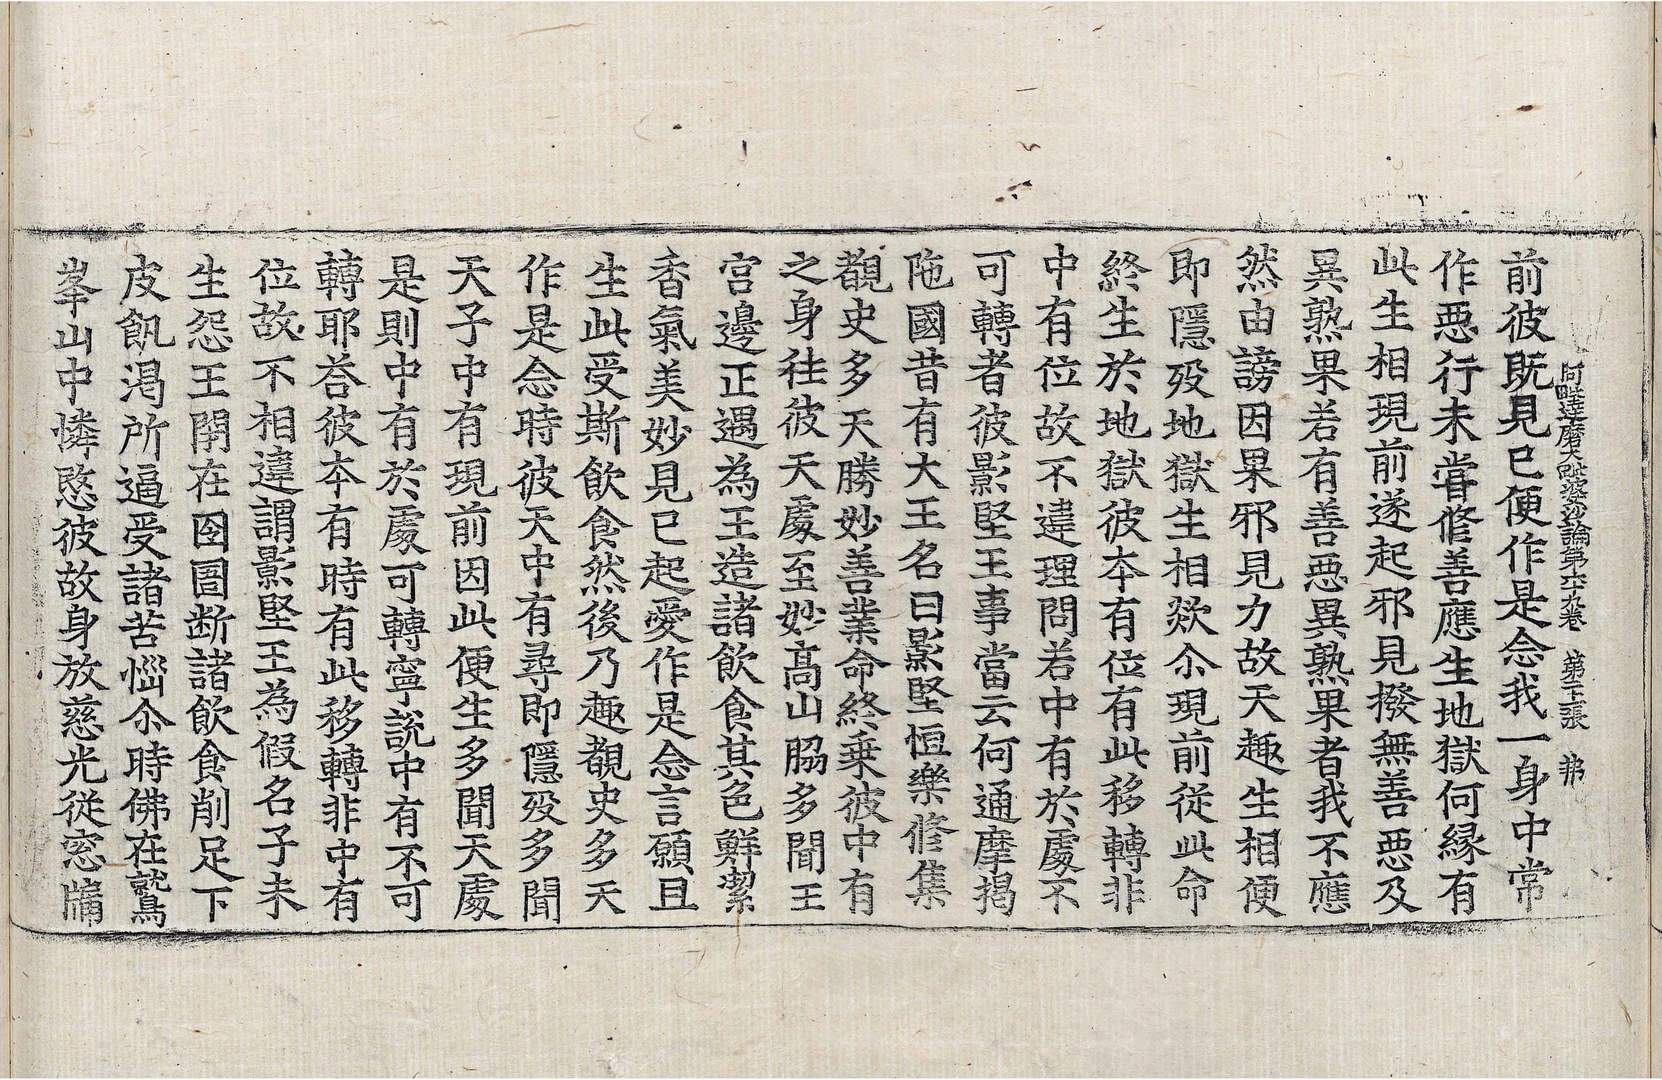 阿毗達磨大毗婆沙論第六十九卷 第十二張 弗
前彼既見已便作是念我一身中常
作惡行未甞脩善應生地獄何縁有
此生相現前遂起邪見撥無善惡及
異熟果若有善惡異熟果者我不應
然由謗因果邪見力故天趣生相便
即隱歿地獄生相欻尒現前從此命
終生於地獄彼本有位有此移轉非
中有位故不違理問若中有於處不
可轉者彼影堅王事當云何通摩揭
陁國昔有大王名曰影堅恒樂脩集
覩史多天勝妙善業命終乗彼中有
之身往彼天處至妙髙山脇多聞王
宫邊正遇為王造諸飲食其色鮮潔
香氣美妙見已起愛作是念言願且
生此受斯飲食然後乃趣覩史多天
作是念時彼天中有尋即隱歿多聞
天子中有現前因此便生多聞天處
是則中有於處可轉寧說中有不可
轉耶荅彼本有時有此移轉非中有
位故不相違謂影堅王為假名子未
生怨王閇在囹圄断諸飲食削足下
皮飢渴所逼受諸苦惱尒時佛在鷲
峯山中憐愍彼故身放慈光從窓牖